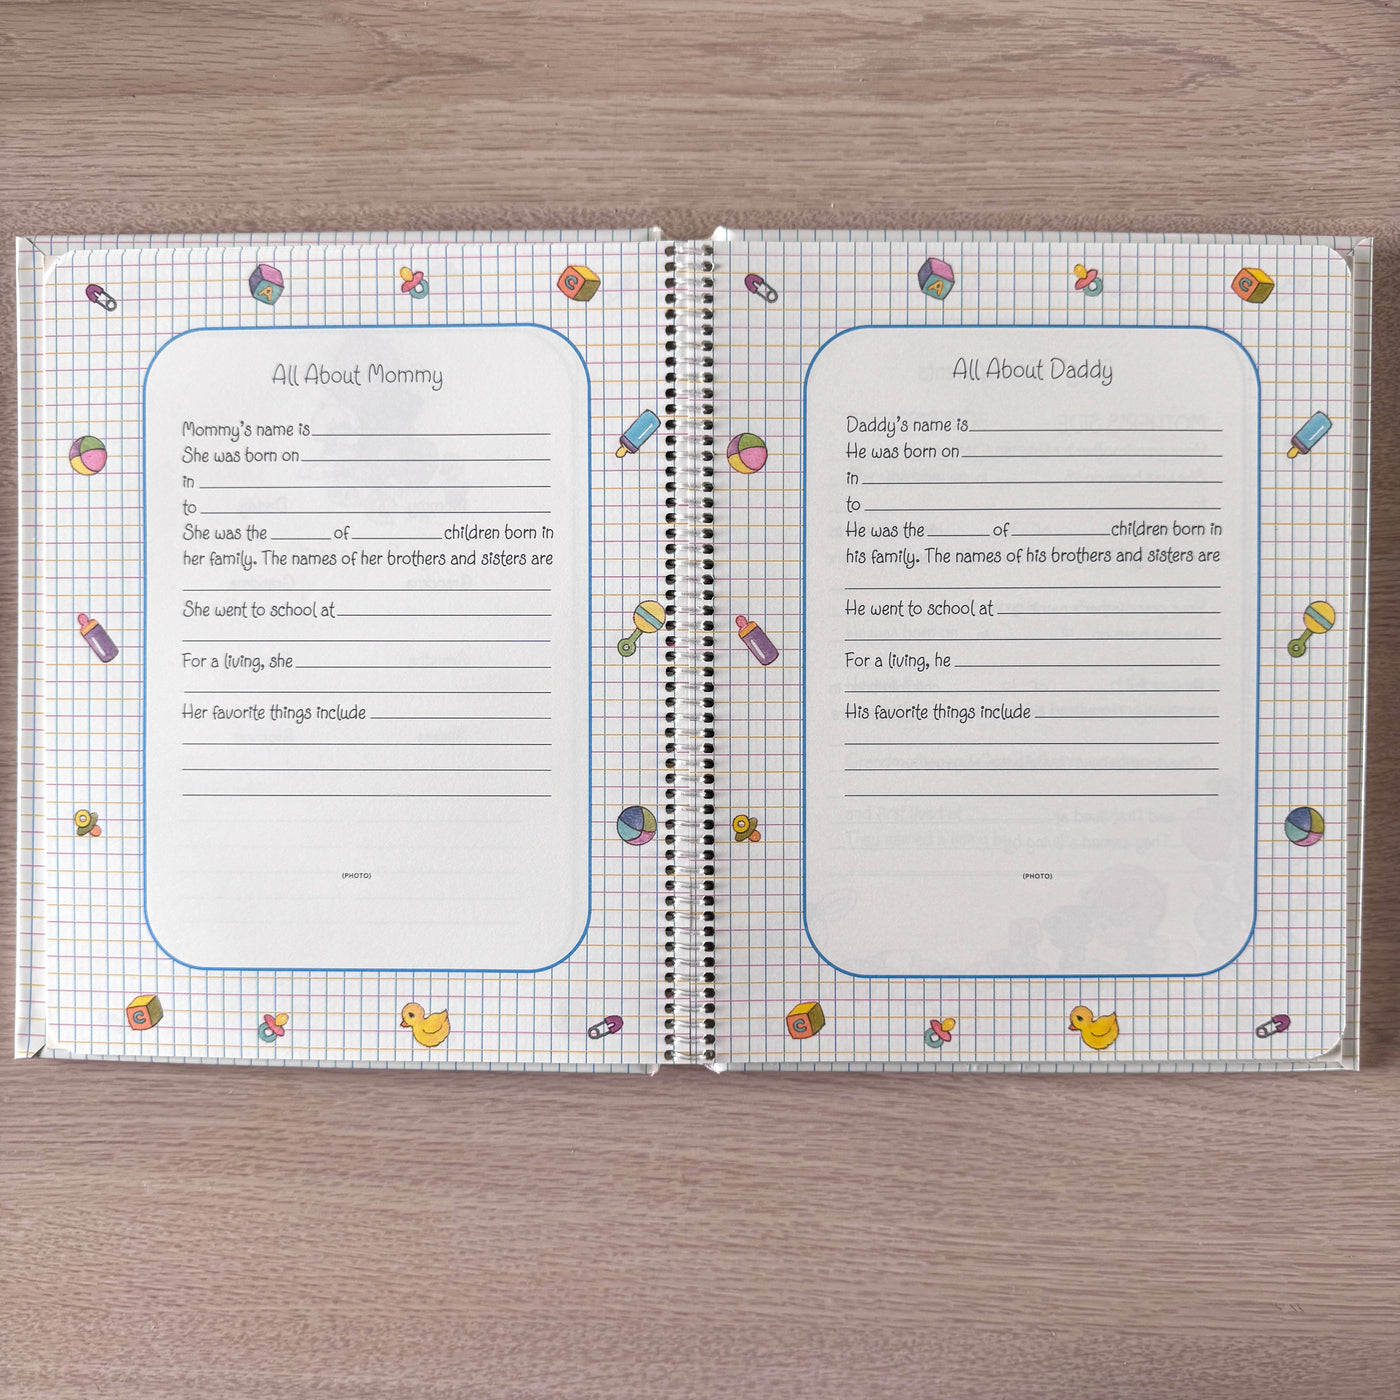 All About Mommy
Mommy's name is
She was born on
in
to
She was the of children born in
her family. The names of her brothers and sisters are
She went to school at
For a living, she
Her favorite things include
(PHOTO)
All About Daddy
Daddy's name is
He was born on
in
to
He was the of children born in
his family. The names of his brothers and sisters are
He went to school at
For a living, he
His favorite things include
(PHOTO)
A
C
C
A
C
C